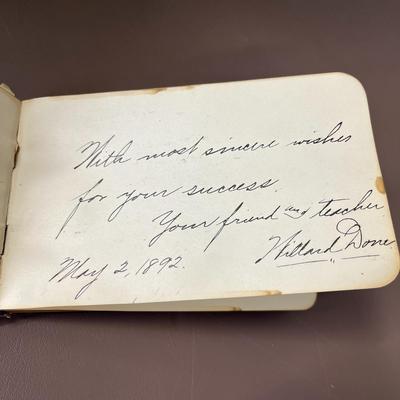 With most sincere wishes
for your success.
Your friend and teacher
Willard Done
May 2, 1892.